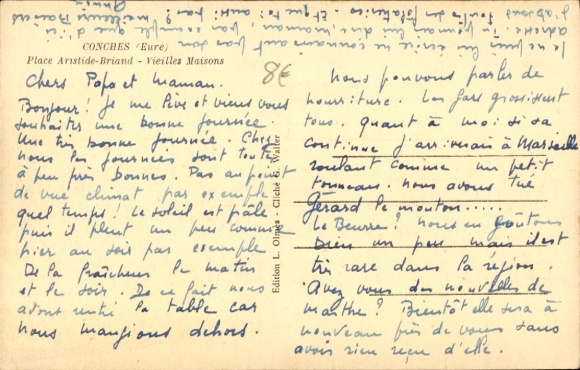 CONCHES (Eure)
Place Aristide-Briand - Vieilles Maisons
8€
Chers Papa et maman.
Bonjour! Je me lève et viens vous
souhaiter une bonne journée.
Une très bonne journée. Chez
nous les journées sont toutes
à peu près bonnes. Pas au point
de vue climat par exemple
quel temps! Le soleil est pâle
puis il pleut un peu comme
hier au soir par exemple
De la fraîcheur le matin
et le soir. De ce fait nous
avons rentré la table car
nous mangions dehors.
Edition L. - Cliché G. Walter
nous pouvons parler de
nourriture. Les gars grossissent
tous. quant à moi si ça
continue j'arriverai à Marseille
roulant comme un petit
tonneau. nous avons tué
Gérard le mouton.....
Le Beurre? nous en goûtons
bien un peu mais il est
très rare dans la région.
Avez vous des nouvelles de
marthe? Bientôt elle sera à
nouveau près de vous sans
avoir rien reçu d'elle.
Je ne puis lui écrire ne connaissant pas son
adresse. Tu pourras lui dire maman que d'ici